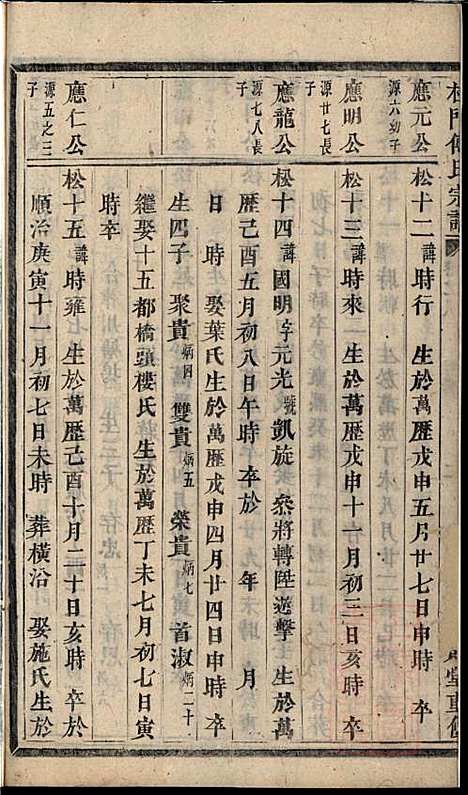 應元公
源六幼子
松十二諱時行　生於萬歷戊申五月廿七日申時　卒
應明公
源廿七長子
松十三諱時來　生於萬歷戊申十一月初三日亥時　卒
應龍公
源七八長子
松十四諱國明字元光號凱旋　叅將轉陞遊擊　生於萬
歷己酉五月初八日午時　卒於　年　月
日　時　娶葉氏生於萬歷戊申四月廿四日申時　卒
生四子　聚貴炳四　雙貴炳五　榮貴炳七　首淑炳二十
繼娶十五都橋頭樓氏　生於萬歷丁未七月初七日寅
時卒
應仁公
源五之三子
松十五諱時雍　生於萬歷己酉十月二十日亥時　卒於
順治庚寅十一月初七日未時　葬橫沿　娶施氏生於